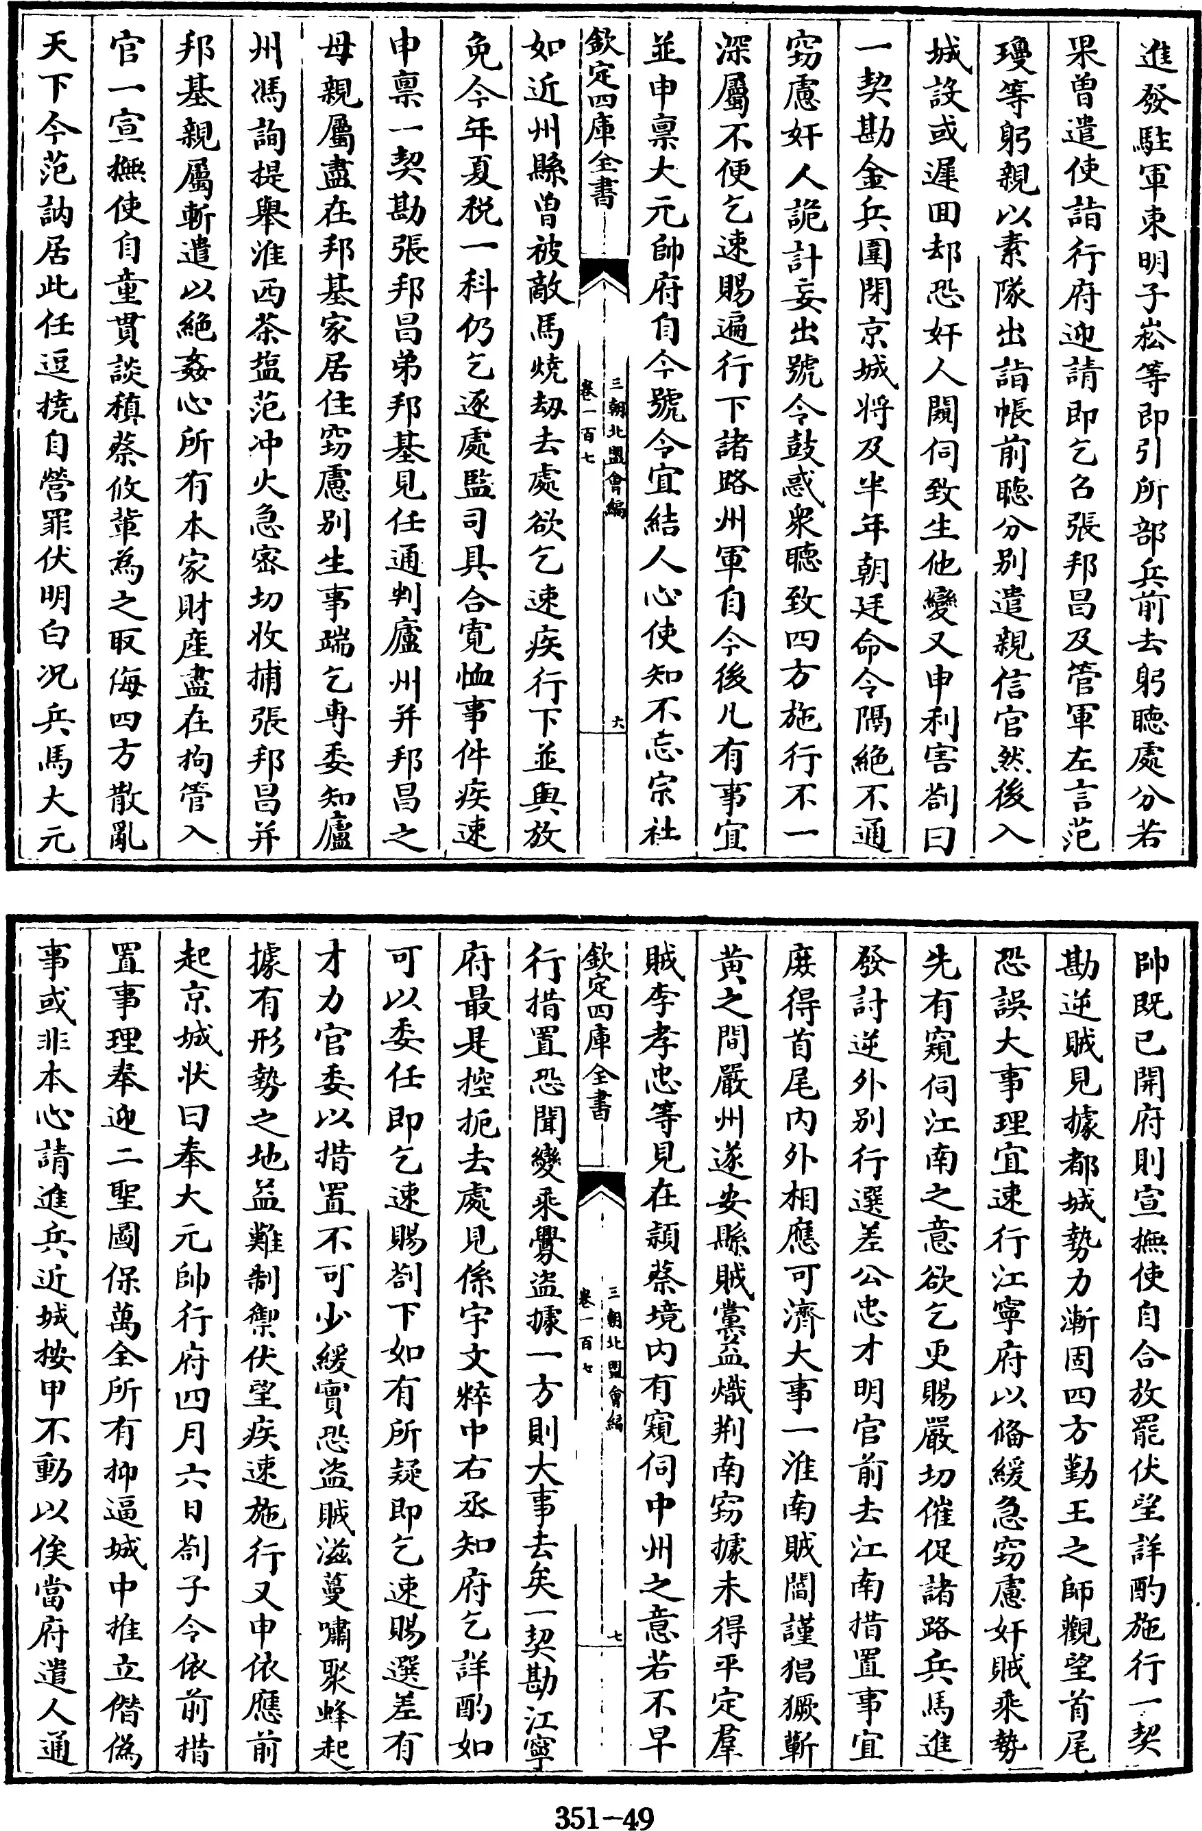 進發駐軍東明子崧等即引所部兵前去躬聽處分若
果曾遣使詣行府迎請即乞召張邦昌及管軍左言范
瓊等躬親以素隊出詣帳前聽分别遣親信官然後入
城設或遲回却恐奸人闚伺致生他變又申利害劄曰
一契勘金兵圍閉京城將及半年朝廷命令隔絶不通
竊慮奸人詭計妄出號令鼓惑衆聽致四方施行不一
深屬不便乞速賜遍行下諸路州軍自今後凡有事宜
並申禀大元帥府自今號令宜結人心使知不忘宗社
欽定四庫全書
三朝北盟會編
卷一百七
六
如近州縣曽被敵馬燒刼去處欲乞速疾行下並與放
免今年夏税一科仍乞逐處監司具合寛恤事件疾速
申禀一契勘張邦昌弟邦基見任通判廬州并邦昌之
母親屬盡在邦基家居住竊慮别生事端乞專委知廬
州馮詢提舉淮西茶塩范冲火急密切收捕張邦昌并
邦基親屬斬遣以絶姦心所有本家財產盡在拘管入
官一宣撫使自童貫談稹蔡攸軰為之取侮四方散亂
天下今范訥居此任逗撓自營罪伏明白况兵馬大元
帥既已開府則宣撫使自合放罷伏望詳酌施行一契
勘逆賊見據都城勢力漸固四方勤王之師觀望首尾
恐誤大事理宜速行江寧府以備緩急竊慮奸賊乘勢
先有窺伺江南之意欲乞更賜嚴切催促諸路兵馬進
發討逆外别行選差公忠才明官前去江南措置事宜
庻得首尾内外相應可濟大事一淮南賊閻謹猖獗蘄
黄之間嚴州遂安縣賊黨益熾荆南竊據未得平定羣
賊李孝忠等見在潁蔡境内有窺伺中州之意若不早
欽定四庫全書
三朝北盟會編
卷一百七
七
行措置恐聞變乘釁盜據一方則大事去矣一契勘江寧
府最是控扼去處見係宇文粹中右丞知府乞詳酌如
可以委任即乞速賜劄下如有所疑即乞速賜選差有
才力官委以措置不可少緩實恐盜賊滋蔓嘯聚蜂起
據有形勢之地益難制禦伏望疾速施行又申依應前
起京城狀曰奉大元帥行府四月六日劄子令依前措
置事理奉迎二聖圖保萬全所有抑逼城中推立僭偽
事或非本心請進兵近城按甲不動以俟當府遣人通
351-49